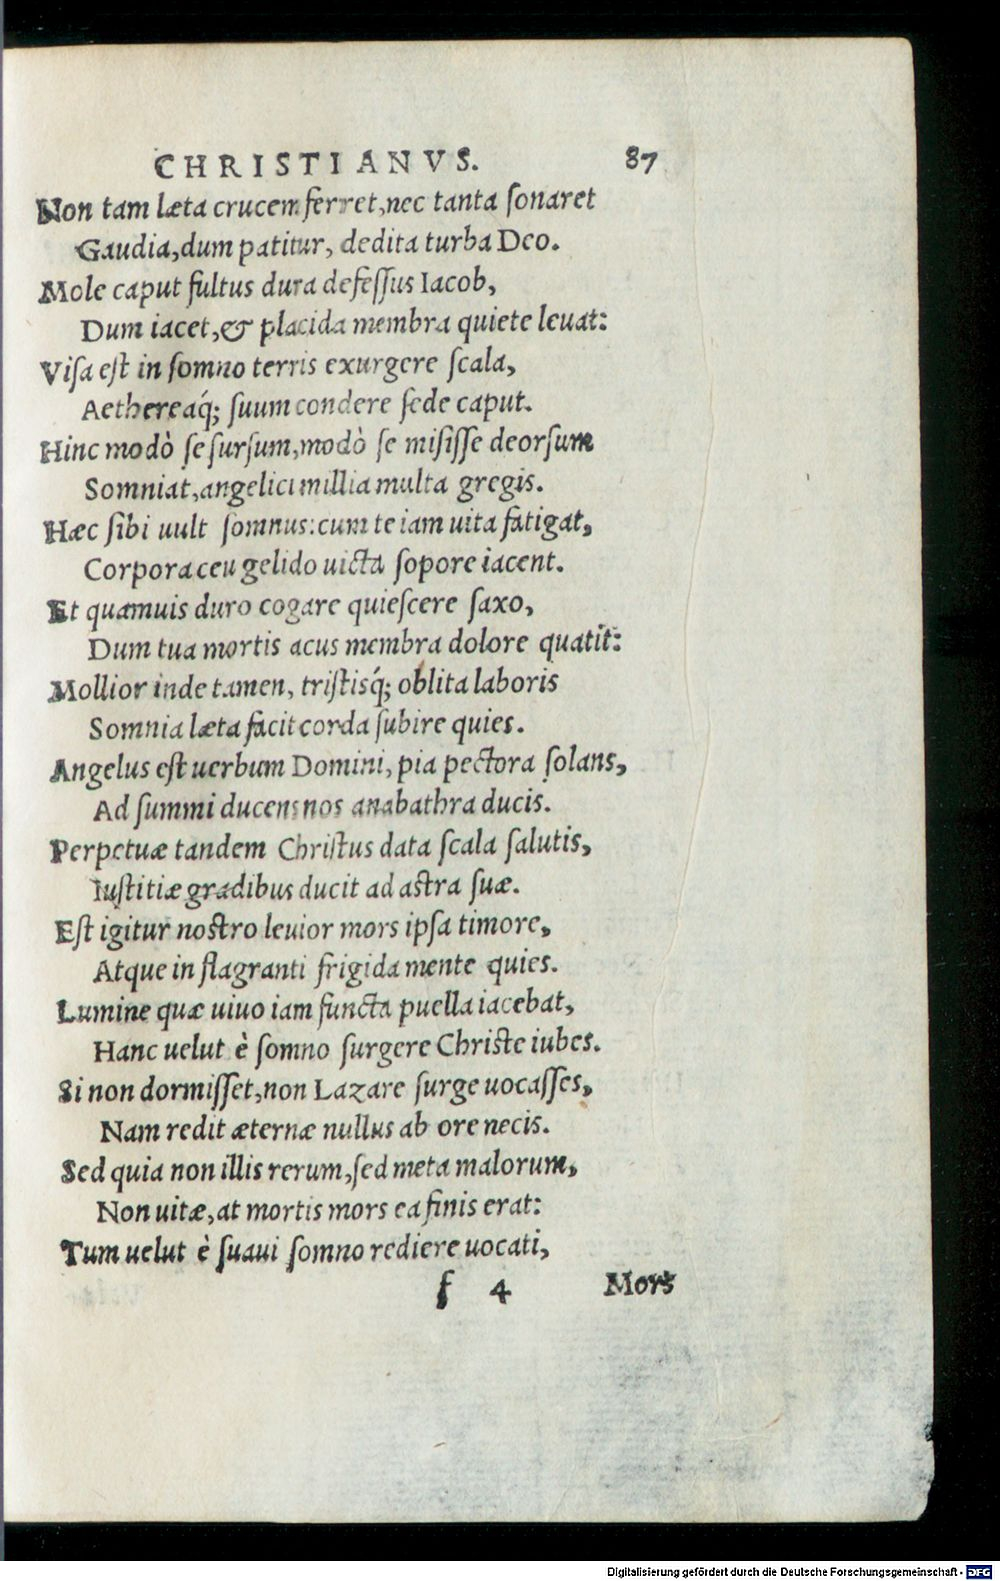 CHRISTIANVS. 87
Non tam læta crucem ferret, nec tanta ſonaret
Gaudia, dum patitur, dedita turba Deo.
Mole caput fultus dura defeſſus Iacob,
Dum iacet, & placida membra quiete leuat:
Viſa eſt in ſomno terris exurgere ſcala,
Aethereaq́; ſuum condere ſede caput.
Hinc modò ſe ſurſum, modò ſe miſiſſe deorſum
Somniat, angelici millia multa gregis.
Hæc ſibi uult ſomnus: cum te iam uita fatigat,
Corpora ceu gelido uicta ſopore iacent.
Et quamuis duro cogare quieſcere ſaxo,
Dum tua mortis acus membra dolore quatit:
Mollior inde tamen, triſtisq́; oblita laboris
Somnia læta facit corda ſubire quies.
Angelus eſt uerbum Domini, pia pectora ſolans,
Ad ſummi ducens nos anabathra ducis.
Perpetuæ tandem Chriſtus data ſcala ſalutis,
Iuſtitiæ gradibus ducit ad aſtra ſuæ.
Eſt igitur noſtro leuior mors ipſa timore,
Atque in flagranti frigida mente quies.
Lumine quæ uiuo iam functa puella iacebat,
Hanc uelut è ſomno ſurgere Chriſte iubes.
Si non dormiſſet, non Lazare ſurge uocaſſes,
Nam redit æternæ nullus ab ore necis.
Sed quia non illis rerum, ſed meta malorum,
Non uitæ, at mortis mors ea finis erat:
Tum uelut è ſuaui ſomno rediere uocati,
f 4 Mors
Digitalisierung gefördert durch die Deutsche Forschungsgemeinschaft - DFG